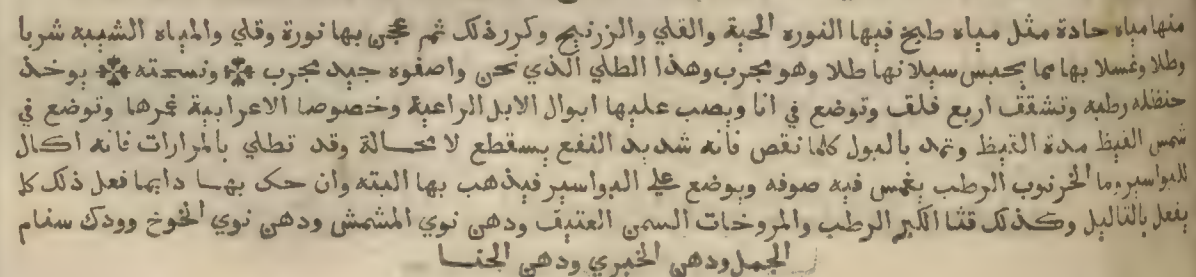 منها مياه حادة مثل مياه طبخ فيها النوره الحية والقلي والزرنيخ وكرر ذلك ثم عجن بها نورة وقلي والمياه الشبيبه شربا
وطلا وغسلا بها مما يحبس سيلانها طلا وهو مجرب وهذا الطلي الذي نحن واصفوه جيد مجرب ونسحته يوخذ
حنظله رطبه وتشقف اربع فلقف وتوضع في انا ويصب عليها ابوال الابل الراعية وخصوصا الاعرابية غمرها وتوضع في
شمس القيظ مدة القيظ وتمد بالبول كلما نقص فانه شديد النفع يسقطع لا محسالة وقد تطلي بالمرارات فانه اكال
للبواسير وما الخرنوب الرطب يغمس فيه صوفه ويوضع علي البواسير فيذهب بها البته وان حك بهسا دايما فعل ذلك كل
يفعل بالثاليل وكذلك قثا الكبر الرطب والمروخات السمن العتيف ودهن نوي المشمش ودهن نوي الخوخ وودك سنام
الجمل ودهن الخيري ودهن الحنسا